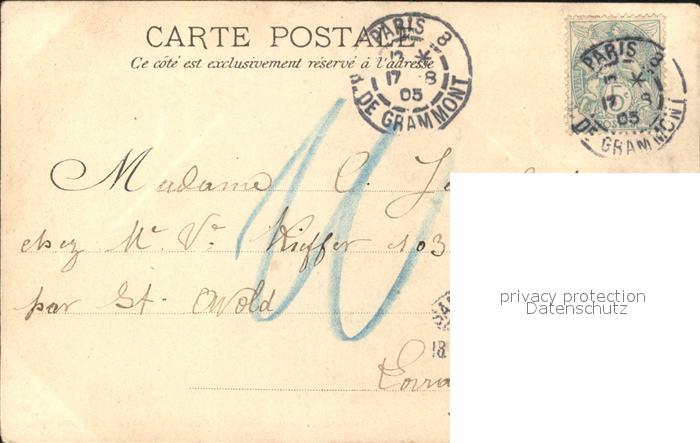 CARTE POSTALE
Ce côté est exclusivement réservé à l'adresse
PARIS 8
13 * 8
17 8
05
R. DE GRAMMONT
PARIS 8
13 *
17 8
05
DE GRAMMONT
5c
Madame C.
chez Mr Vr Kieffer 103
par St. Avold
18
privacy protection
Datenschutz